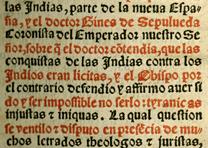 las Indias, parte de la nueua Espa-
ña, y el doctor Gines de Sepulueda
Coronista del Emperador nuestro Se-
ñor, sobre q̃ el doctor cõtendia, que las
conquistas de las Indias contra los
Indios eran licitas, y el Obispo por
el contrario defendio y affirmo auer si
do y ser impossible no serlo: tyranicas
injustas e iniquas. La qual question
se ventilo e disputo en presẽcia de mu-
chos letrados theologos e juristas,